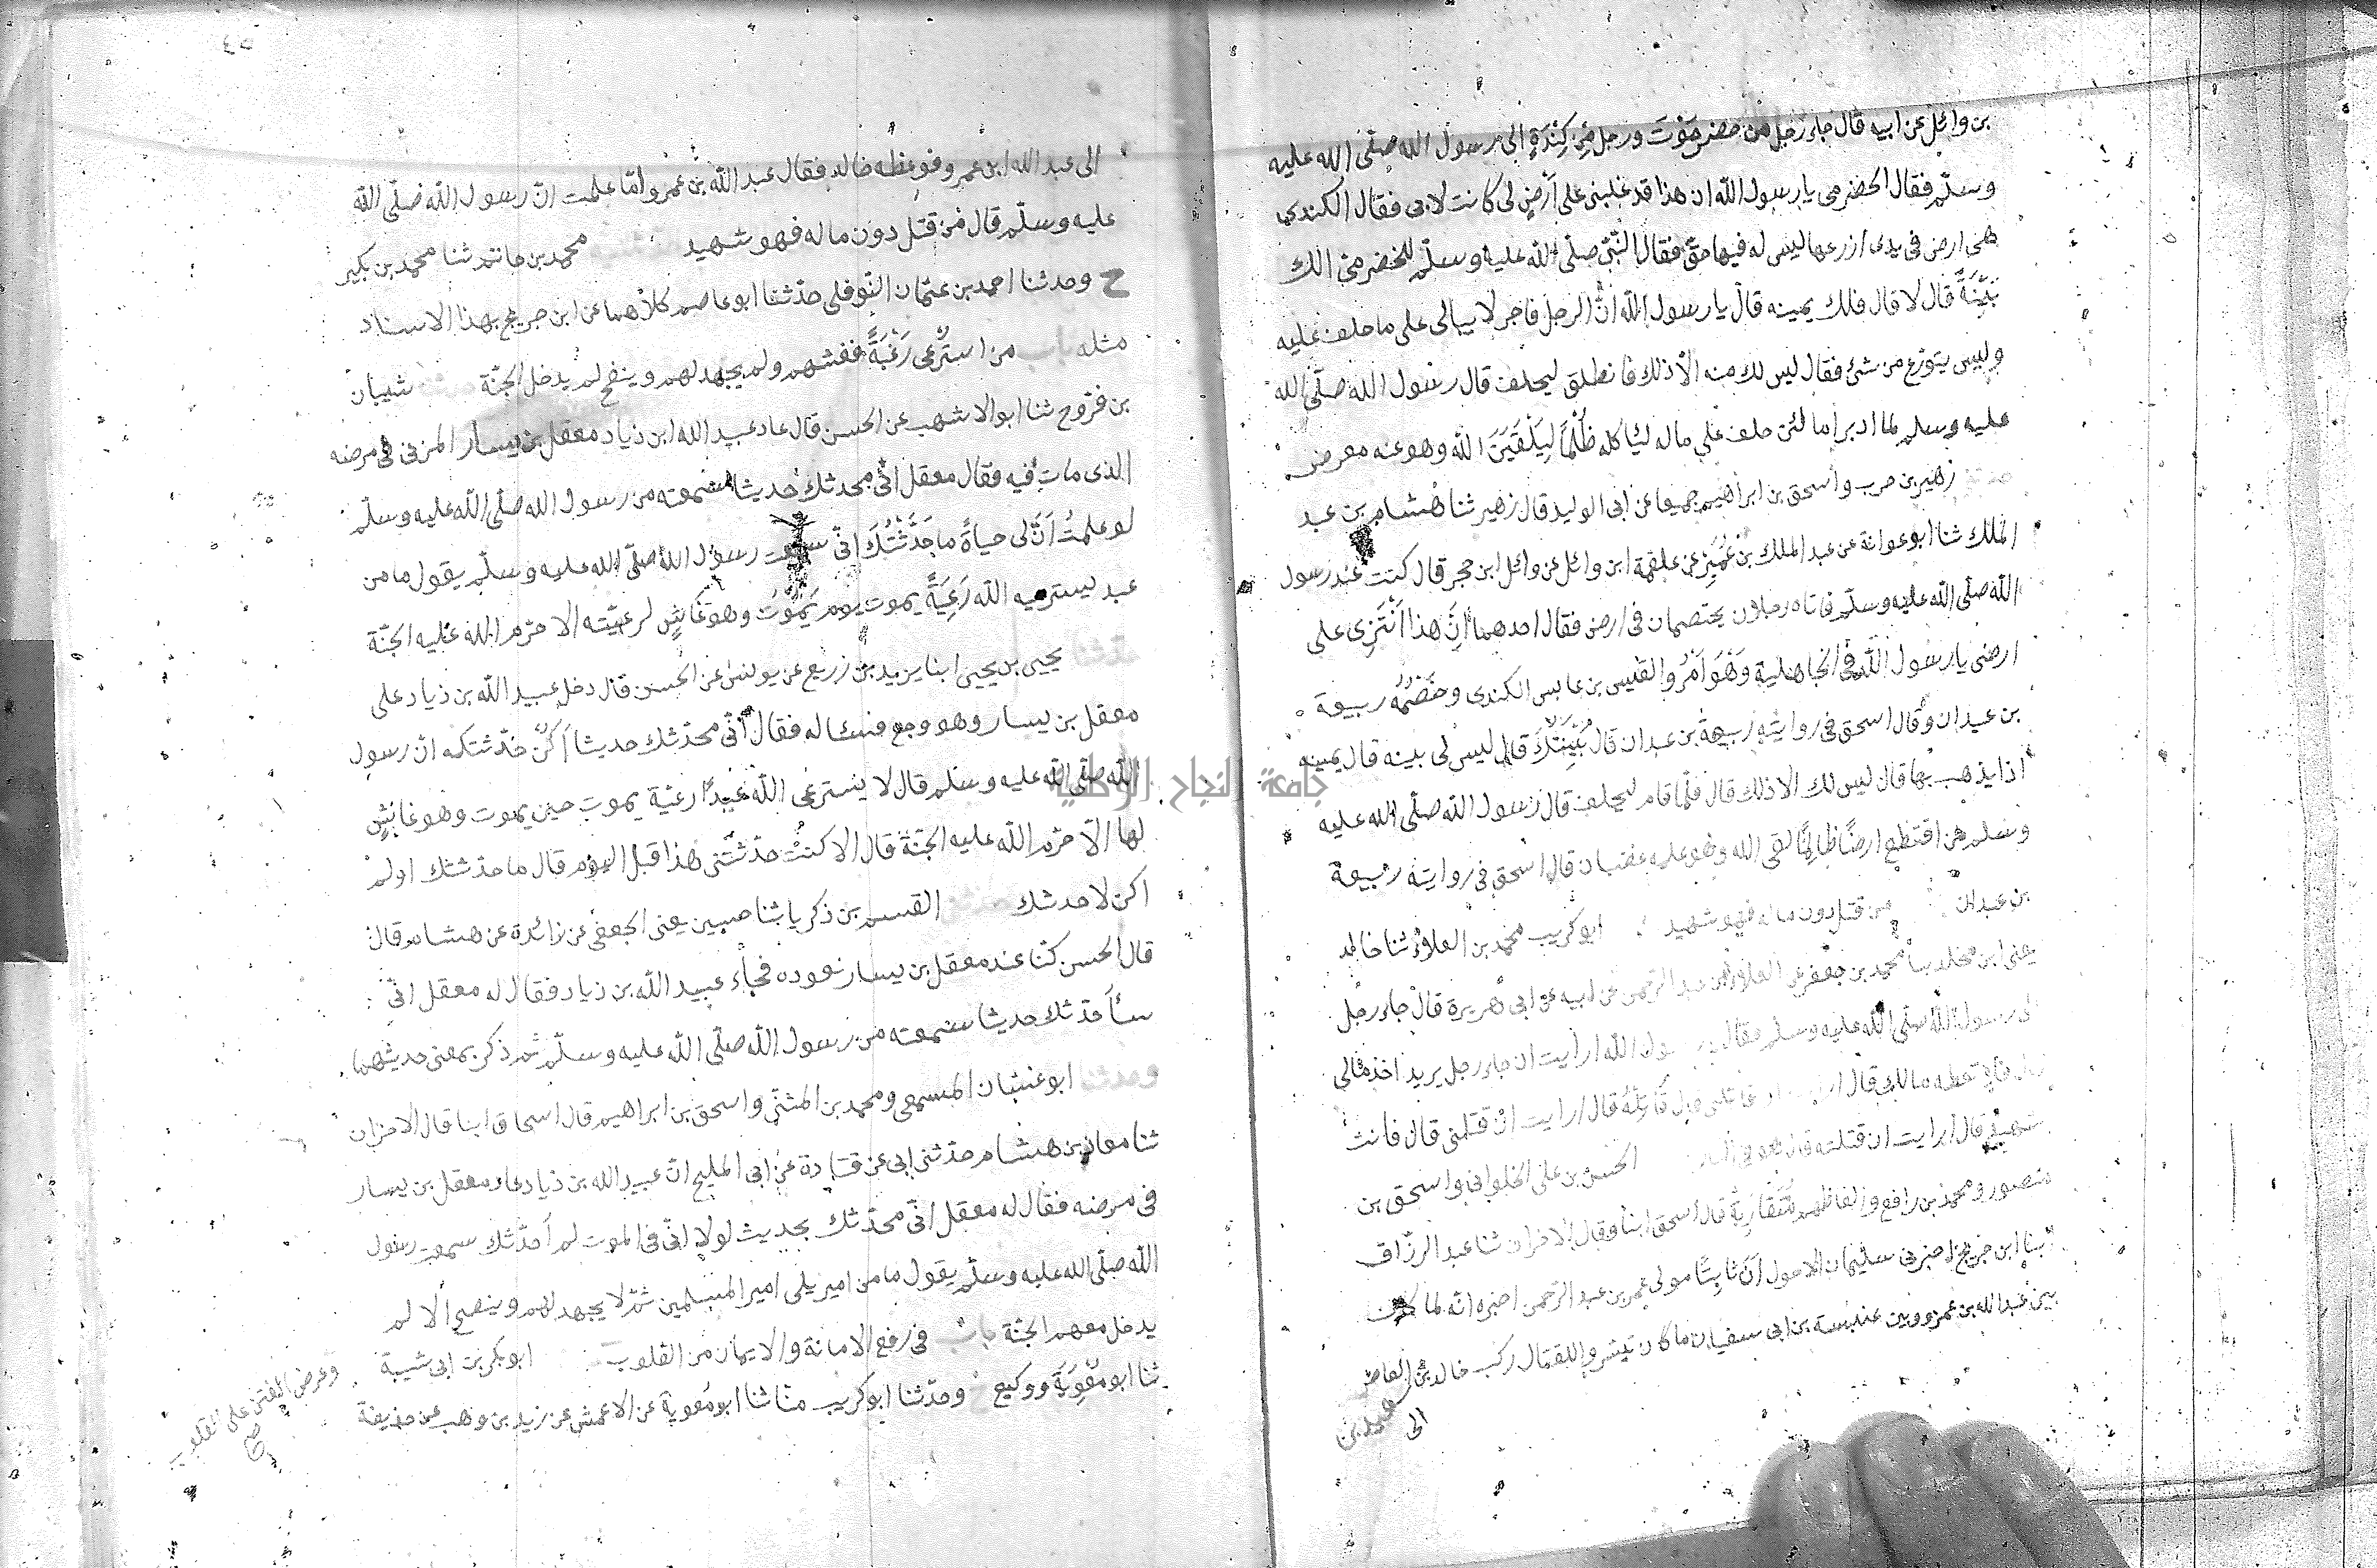 بن وائل عن ابيه قال جاء رجل من حضرموت ورجل من كندة الى رسول الله صلى الله عليه
وسلم فقال الحضرمى يا رسول الله ان هذا قد غلبنى على أرض لى كانت لابى فقال الكندى
هى ارض فى يدى ازرعها ليس له فيها حق فقال النبى صلى الله عليه وسلم للحضرمى الك
بينة قال لا قال فلك يمينه قال يا رسول الله ان الرجل فاجر لا يبالى على ما حلف عليه
وليس يتورع من شئ فقال ليس لك منه الا ذلك فانطلق ليحلف قال رسول الله صلى الله
عليه وسلم لما ادبر اما لئن حلف على ماله ليأكله ظلما ليلقين الله وهو عنه معرض
زهير بن حرب واسحق بن ابراهيم جميعا عن ابى الوليد قال زهير ثنا هشام بن عبد
الملك ثنا ابو عوانة عن عبد الملك بن عمير عن علقمة ابن وائل عن وائل ابن حجر قال كنت عند رسول
الله صلى الله عليه وسلم فاتاه رجلان يختصمان فى ارض فقال احدهما ان هذا انتزى على
ارضى يا رسول الله فى الجاهلية وهو امرؤ القيس بن عابس الكندى وخصمه ربيعة
بن عبدان وقال اسحق فى روايته ربيعة بن عبدان قال بينتك قال ليس لى بينه قال يمينه
اذا يذهب بها قال ليس لك الا ذلك قال فلما قام ليحلف قال رسول الله صلى الله عليه
وسلم من اقتطع ارضا ظالما لقى الله وهو عليه غضبان قال اسحق فى روايته ربيعة
بن عبدان من قتل دون ماله فهو شهيد ابو كريب محمد بن العلاء ثنا خالد
يعنى ابن مخلد ثنا محمد بن جعفر عن العلاء بن عبد الرحمن عن ابيه عن ابى هريرة قال جاء رجل
الى رسول الله صلى الله عليه وسلم فقال يا رسول الله ارأيت ان جاء رجل يريد اخذ مالى
قال فلا تعطه مالك قال قاتلنى قال قاتله قال ارايت ان قتلنى قال فانت
شهيد قال ارايت ان قتلته قال هو فى النار الحسن بن على الحلوانى واسحق بن
منصور ومحمد بن رافع والفاظهم متقاربة قال اسحق ابنا وقال الاخران ثنا عبد الرزاق
ابنا ابن جريج اخبرنى سليمان الاحول ان ثابتا مولى عمر بن عبد الرحمن اخبره انه لما كان
بين عبد الله بن عمرو وبين عنبسة بن ابى سفيان ما كان تيسروا للقتال ركب خالد بن العاص
الى
٤٥
الى عبد الله ابن عمرو فوعظه خالد فقال عبد الله بن عمرو اما علمت ان رسول الله صلى الله
عليه وسلم قال من قتل دون ماله فهو شهيد محمد بن حاتم ثنا محمد بن بكير
ح وحدثنا احمد بن عثمان النوفلى حدثنا ابو عاصم كلاهما عن ابن جريج بهذا الاسناد
مثله باب من استرعى رعية فغشهم ولم يجهد لهم وينصح لم يدخل الجنة شيبان
بن فروح ثنا ابو الاشهب عن الحسن قال عاد عبيد الله ابن زياد معقل بن يسار المزنى فى مرضه
الذى مات فيه فقال معقل انى محدثك حديثا سمعته من رسول الله صلى الله عليه وسلم
لو علمت أن لى حياة ما حدثتك انى سمعت رسول الله صلى الله عليه وسلم يقول ما من
عبد يسترعيه الله رعية يموت يوم يموت وهو غاش لرعيته الا حرم الله عليه الجنة
حدثنا يحيى بن يحيى ابنا يزيد بن زريع عن يونس عن الحسن قال دخل عبيد الله بن زياد على
معقل بن يسار وهو وجع فسئاله فقال انى محدثك حديثا لم أكن حدثتكه ان رسول
الله صلى الله عليه وسلم قال لا يسترعى الله عبدا رعية يموت حين يموت وهو غاش
لها الا حرم الله عليه الجنة قال الا كنت حدثتنى هذا قبل اليوم قال ما حدثتك اولم
اكن لاحدثك حدثنى القسم بن زكريا ثنا حسين يعنى الجعفى عن زائدة عن هشام قال
قال الحسن كنا عند معقل بن يسار نعوده فجاء عبيد الله بن زياد فقال له معقل انى
سأحدثك حديثا سمعته من رسول الله صلى الله عليه وسلم ثم ذكر بمعنى حديثهما
وحدثنا ابو غسان المسمعى ومحمد بن المثنى واسحق بن ابراهيم قال اسحاق ابنا قال الاخران
ثنا معاذ بن هشام حدثنى ابى عن قتادة عن ابى المليح ان عبيد الله بن زياد عاد معقل بن يسار
فى مرضه فقال له معقل انى محدثك بحديث لولا انى فى الموت لم أحدثك سمعت رسول
الله صلى الله عليه وسلم يقول ما من امير يلى امر المسلمين ثم لا يجهد لهم وينصح الا لم
يدخل معهم الجنة باب فى رفع الامانة والايمان من القلوب ابو بكر بن ابى شيبة
ثنا ابو معوية ووكيع ح وحدثنا ابو كريب ثنا ابو معوية عن الاعمش عن زيد بن وهب عن حذيفة
وعرض الفتن على القلوب
صح
جامعة النجاح الوطنية